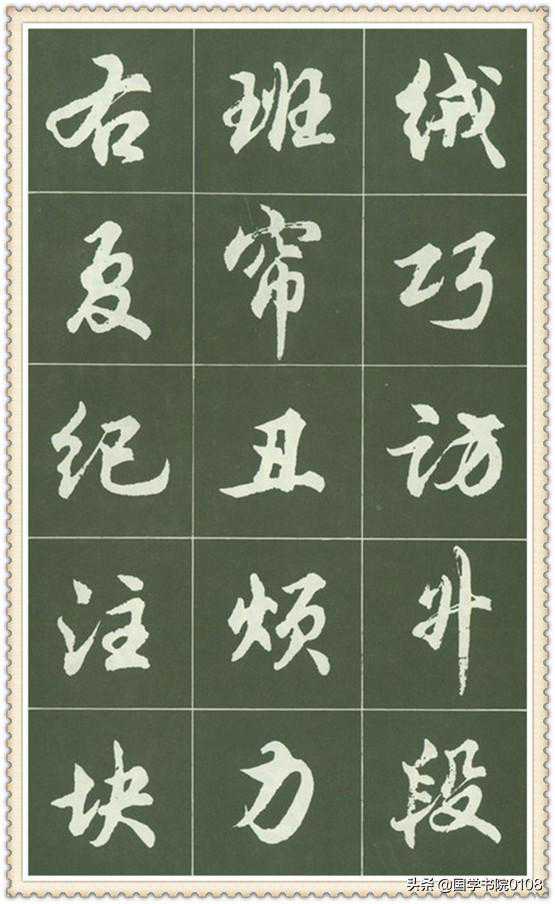 绒巧访升段
班帘丑烦力
右复纪注块
头条 @国学书院0108